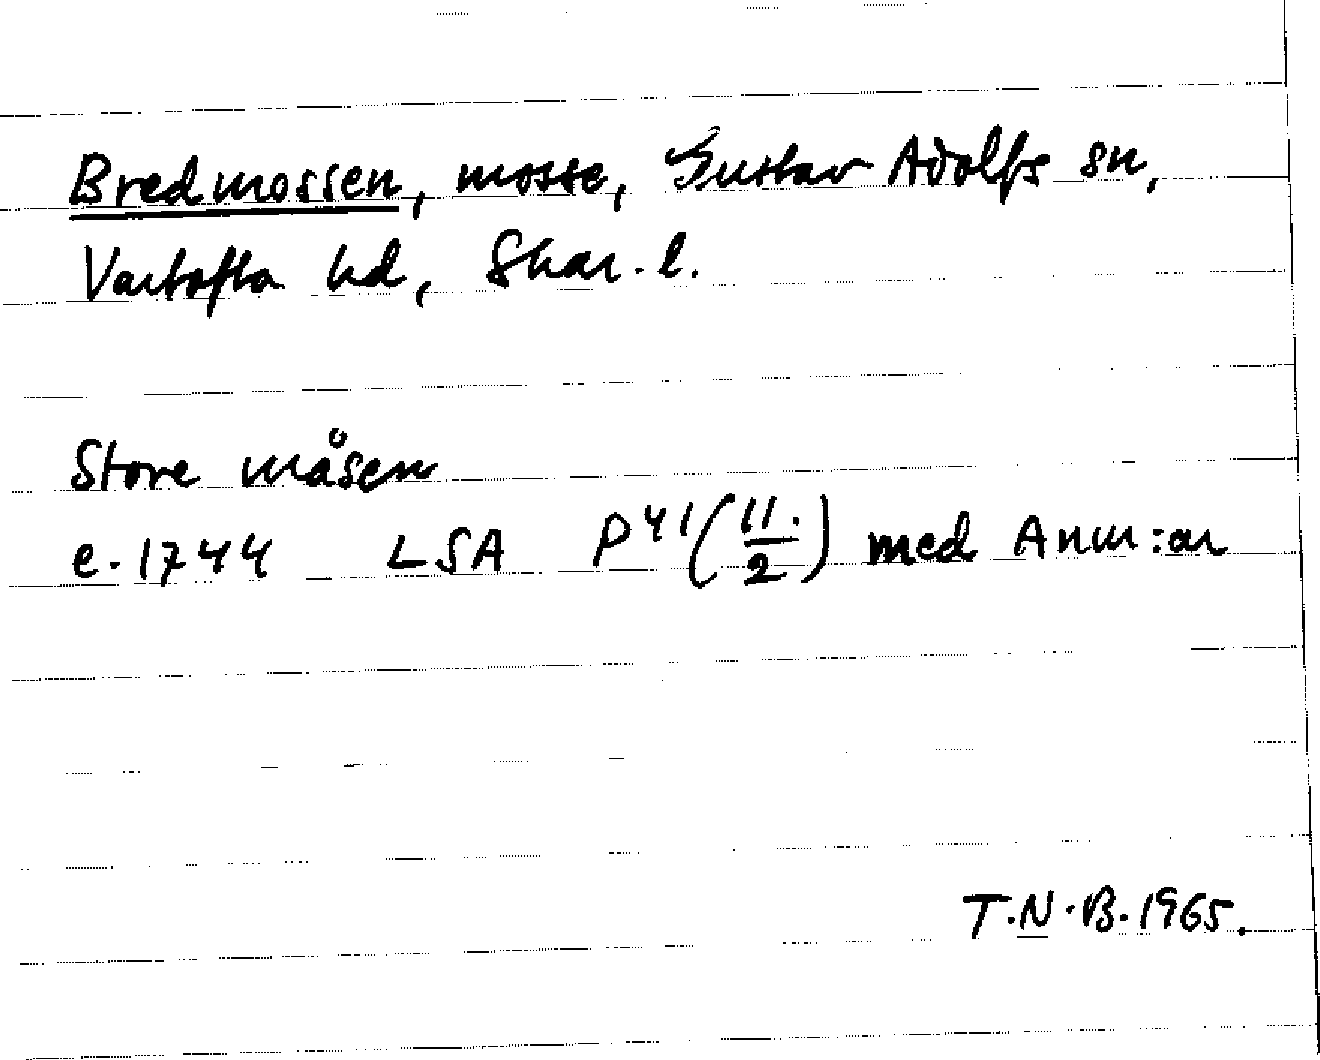 Bredmossen, mosse, Gustav Adolfs sn,
Vartofta hd, Skar. l.
Store måsen
e. 1744 LSA P41 (11./2) med Anm:ar
T.N.B. 1965.